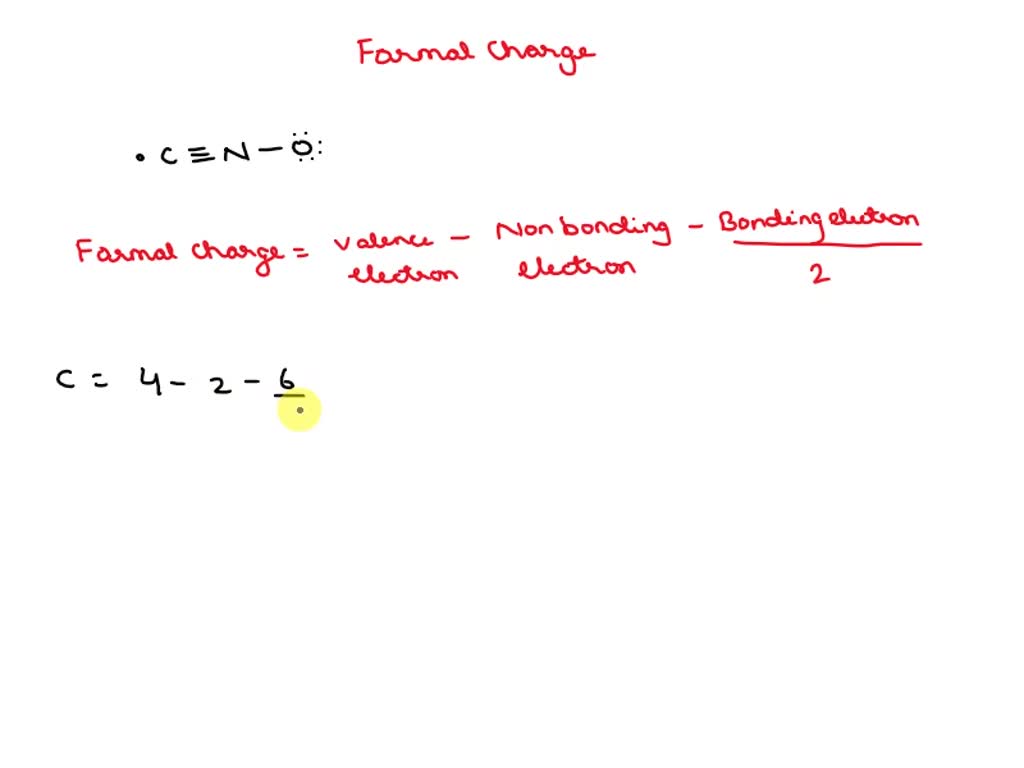 Formal Charge
. C ≡ N – Ö:
Formal charge = valence electron – Non bonding electron – Bonding electron / 2
C = 4 - 2 - 6